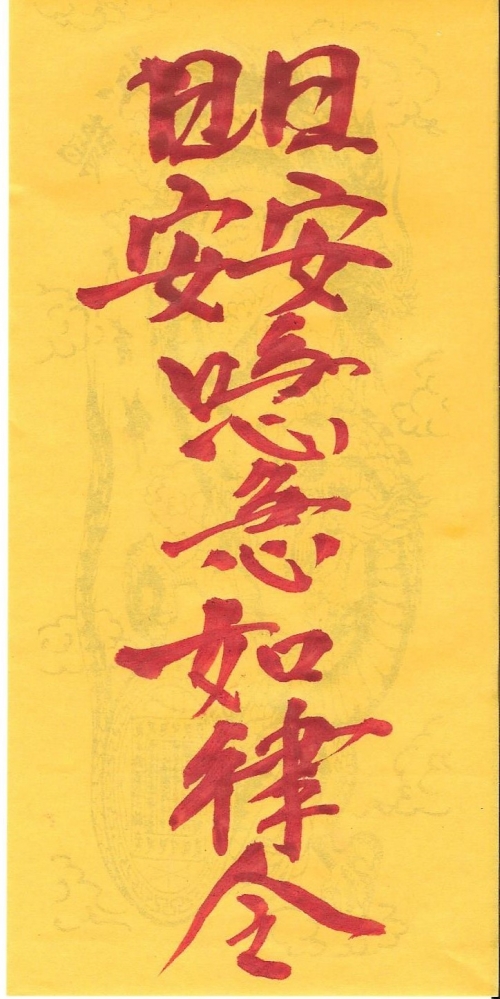 日日安安急急如律令